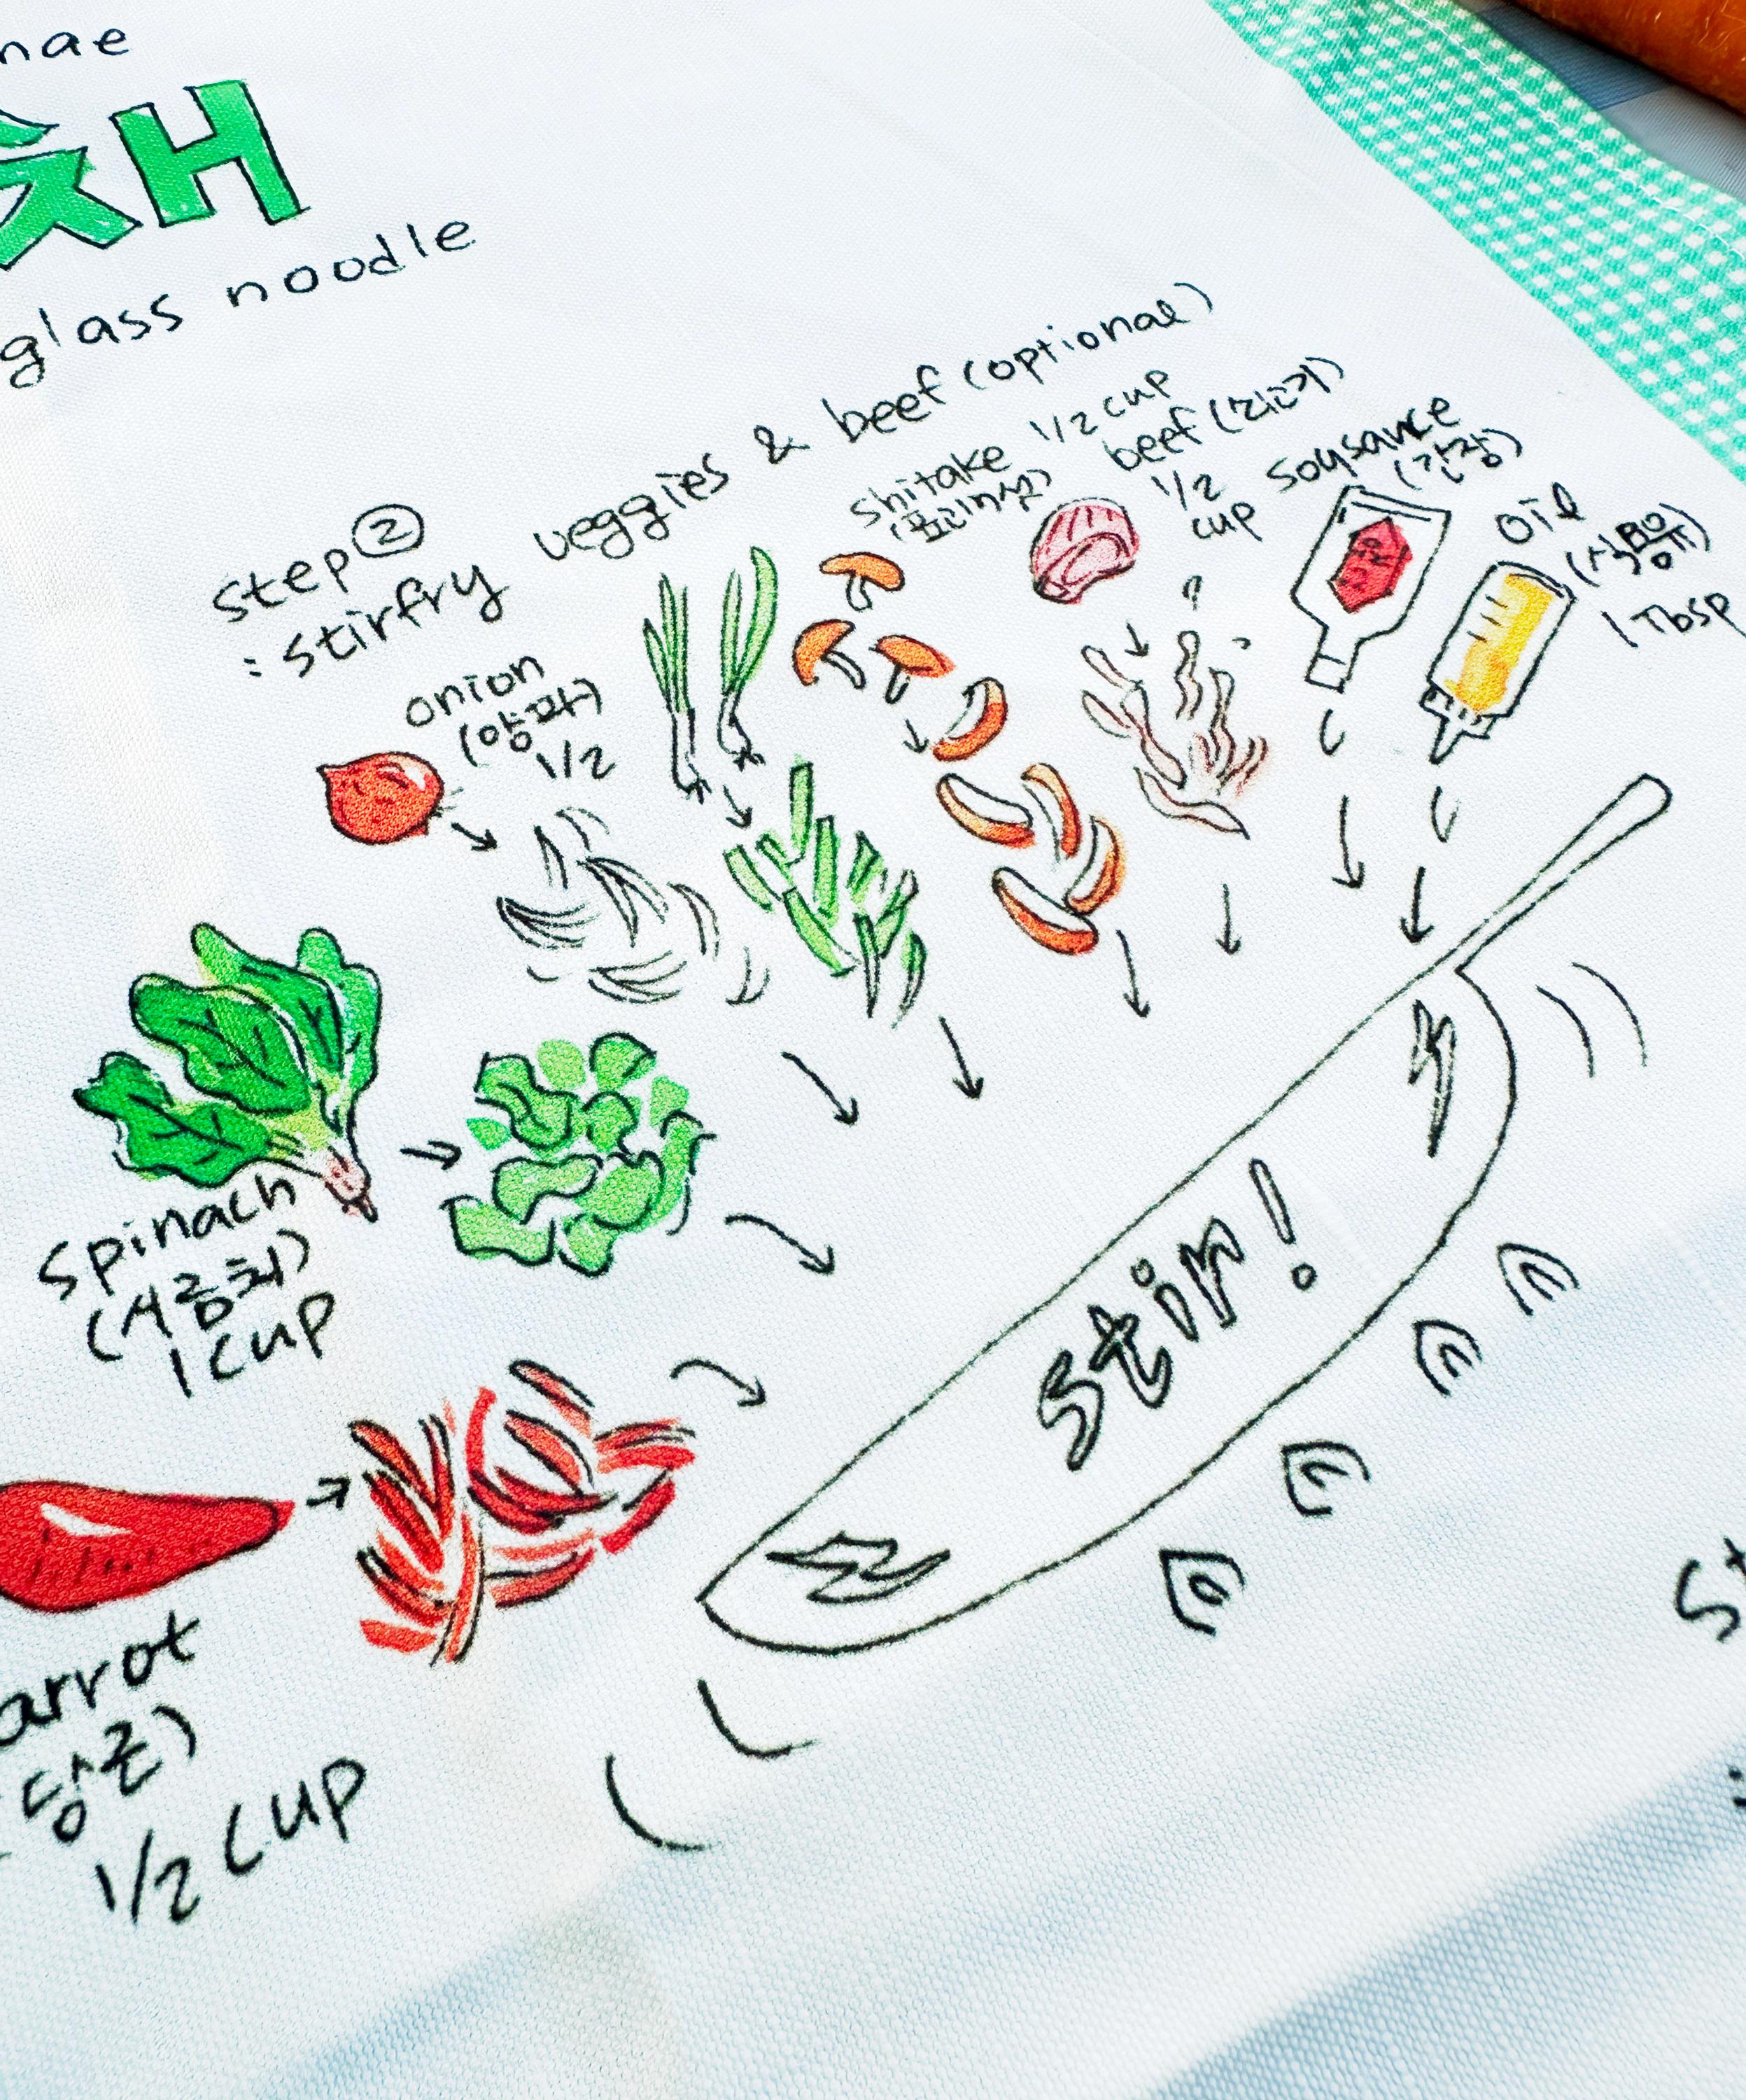 nae
채
glass noodle
step ②
: stirfry veggies & beef (optional)
onion
(양파)
1/2
shitake 1/2 cup
(표고버섯)
beef (고기)
1/2
cup
soysauce
(간장)
oil
(식용유)
1 Tbsp
spinach
(시금치)
1 cup
arrot
당근)
1/2 cup
stir!
St